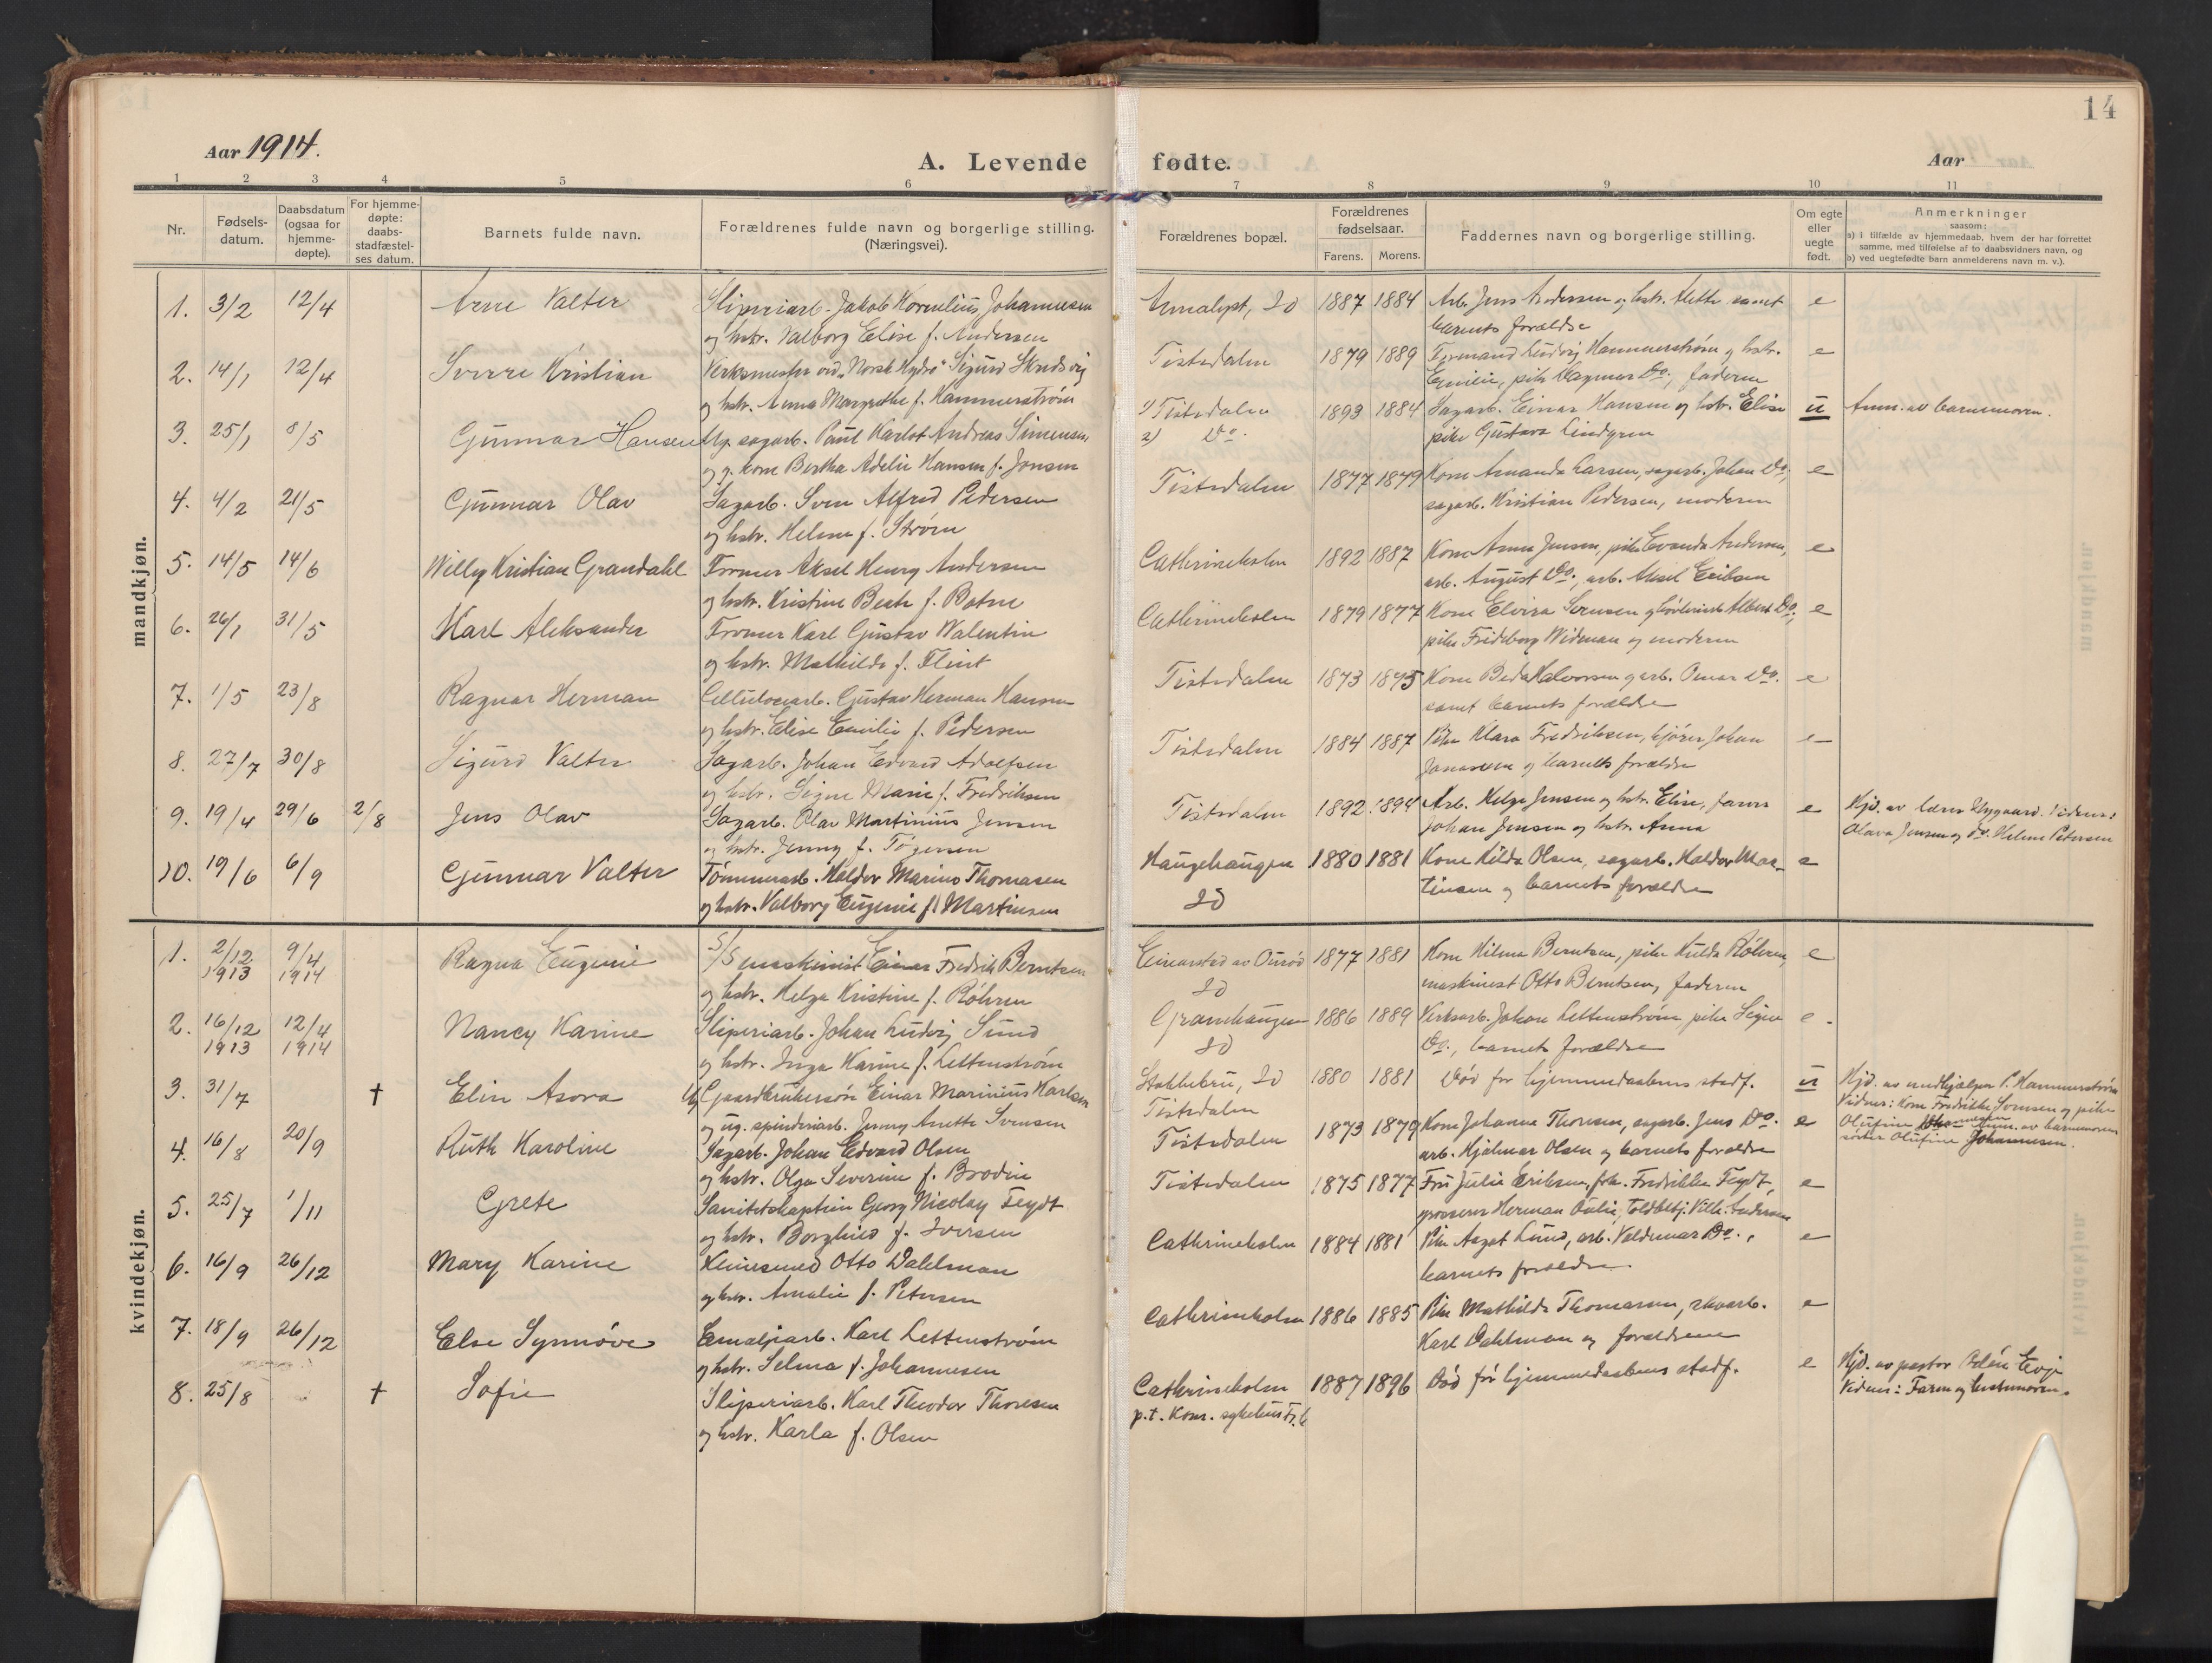 14
Aar 1914.
A. Levende fødte.
Aar
1 2 3 4 5 6 7 8 9 10 11
Nr.
Fødsels-
datum.
Daabsdatum
(ogsaa for
hjemme-
døpte).
For hjemme-
døpte:
daabs-
stadfæstel-
ses datum.
Barnets fulde navn.
Forældrenes fulde navn og borgerlige stilling.
(Næringsvei).
Forældrenes bopæl.
Forældrenes
fødselsaar.
Farens. Morens.
Faddernes navn og borgerlige stilling.
Om egte
eller
uegte
født.
Anmerkninger
saasom:
a) i tilfælde av hjemmedaab, hvem der har forrettet
samme, med tilføielse af to daabsvidners navn, og
b) ved uegtefødte barn anmelderens navn m. v.).
mandkjøn.
1. 3/2 12/4 Arne Valter Sliperiarb. Jakob Kornelius Johannesen 1887 1884 Arb. Jens Andersen og hstr. Alette samt e
og hstr. Valborg Elise f. Andersen barnets forældre
2. 14/1 12/4 Sverre Kristian Verksmester ved "Norsk Hydro" Sigurd Skudsvig Tistedalen 1879 1889 Formand Ludvig Hammerstrøm og hstr. e
og hstr. Anna Margrethe f. Hammerstrøm Emilie, pike Dagmar Do., faderen
3. 25/1 8/5 Gunnar Hansen Ug. sagarb. Paul Karlot Andreas Simensen 1) Tistedalen 1893 1884 Sagarb. Einar Hansen og hstr. Elise u Anm. av barnemoren.
og g. kone Bertha Adelie Hansen f. Jonsen 2) Do. pike Gustava Lindgren
4. 4/2 21/5 Gunnar Olav Sagarb. Sven Alfred Pedersen Tistedalen 1877 1879 Kone Amanda Larsen, sagarb. Johan Do., e
og hstr. Helene f. Strøm sagarb. Kristian Pedersen, moderen
5. 14/5 14/6 Willy Kristian Grandahl Former Aksel Henry Andersen Cathrineholm 1892 1887 Kone Anna Jensen, pike Evanda Andersen, e
og hstr. Kristine Beate f. Botne arb. August Do., arb. Aksel Eriksen
6. 26/1 31/5 Karl Aleksander Former Karl Gustav Valentin Cathrineholm 1879 1877 Kone Elvira Sørensen og Albert Do., e
og hstr. Mathilde f. Flint pike Frideborg Widman og moderen
7. 1/5 23/8 Ragnar Herman Cellulosearb. Gustav Herman Hansen Tistedalen 1873 1875 Kone Beda Halvorsen og arb. Omar Do. e
og hstr. Elise Emilie f. Pedersen samt barnets forældre
8. 27/7 30/8 Sigurd Valter Sagarb. Johan Edvard Adolfsen Tistedalen 1884 1887 Pike Klara Fredriksen, kjører Johan e
og hstr. Signe Marie f. Fredriksen Jonassen og barnets forældre
9. 19/4 29/6 2/8 Jens Olav Sagarb. Olav Martinius Jensen Tistedalen 1892 1894 Arb. Helge Jensen og hstr. Elise, farver e Hjd. av lærer Nygaard. Vidner:
og hstr. Jenny f. Tøgersen Johan Jensen og hstr. Anna Olava Jensen og do. Helene Petersen
10. 19/6 6/9 Gunnar Valter Tømmerarb. Haldor Marino Thomasen Haugehaugen 1880 1881 Kone Hilda Olsen, sagarb. Haldor Mar- e
og hstr. Valborg Eugenie f. Martinsen Id tinsen og barnets forældre
kvindekjøn.
1. 2/12 1913 9/4 1914 Ragna Eugenie S/S maskinist Einar Fredrik Berntsen 1877 1881 Kone Hilma Berntsen, pike Hulda Røhren, e
og hstr. Helga Kristine f. Røhren Id maskinist Otto Berntsen, faderen
2. 16/12 1913 12/4 1914 Nancy Karine Sliperiarb. Johan Ludvig Sund Granehaugen 1886 1889 Verksarb. Johan Lettenstrøm pike Signe e
og hstr. Inga Karine f. Lettenstrøm Id Do., barnets forældre
3. 31/7 † Elin Asora Ug. Gaardbrukersøn Einar Marinius Karlsen Stokkebru, Id 1880 1881 Død før hjemmedaabens stadf. u Hjd. av medhjælper P. Hammerstrøm
og ug. spinderiarb. Jenny Anette Svensen Tistedalen Vidner: Kone Fredrikke Svensen og pike
Olufine Anm. av barnemorens
søster Olufine Johannesen.
4. 16/8 20/9 Ruth Karoline Sagarb. Johan Edvard Olsen Tistedalen 1873 1879 Kone Johanne Thoresen, sagarb. Jens Do. e
og hstr. Olga Severine f. Brodin arb. Hjalmar Olsen og barnets forældre
5. 25/7 1/11 Grete Sanitetskaptein Georg Nicolay Feydt Tistedalen 1875 1877 Fru Julie Eriksen, frk. Fredrikke Feydt, e
og hstr. Borghild f. Iversen grosserer Herman Oulie, Toldbetj. Vilh. Andersen
6. 16/9 26/12 Mary Karine Kleinsmed Otto Dahlman Cathrineholm 1884 1881 Pike Aagot Lund, arb. Valdemar Do., e
og hstr. Amalie f. Petersen barnets forældre.
7. 18/9 26/12 Else Synnøve Emaljearb. Karl Lettenstrøm Cathrineholm 1886 1885 Pike Mathilde Thomassen, skoarb. e
og hstr. Selma f. Johannesen Karl Dahlman og forældrene
8. 25/8 † Sofie Sliperiarb. Karl Theodor Thoresen Cathrineholm 1887 1896 Død før hjemmedaabens stadf. e Hjd. av pastor Odén Evje
og hstr. Karla f. Olsen p.t. Kom. sykehus Fr.h. Vidner: Faren og bestemoren.